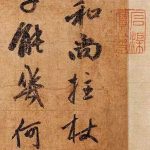 和尚拄杖
子能幾何